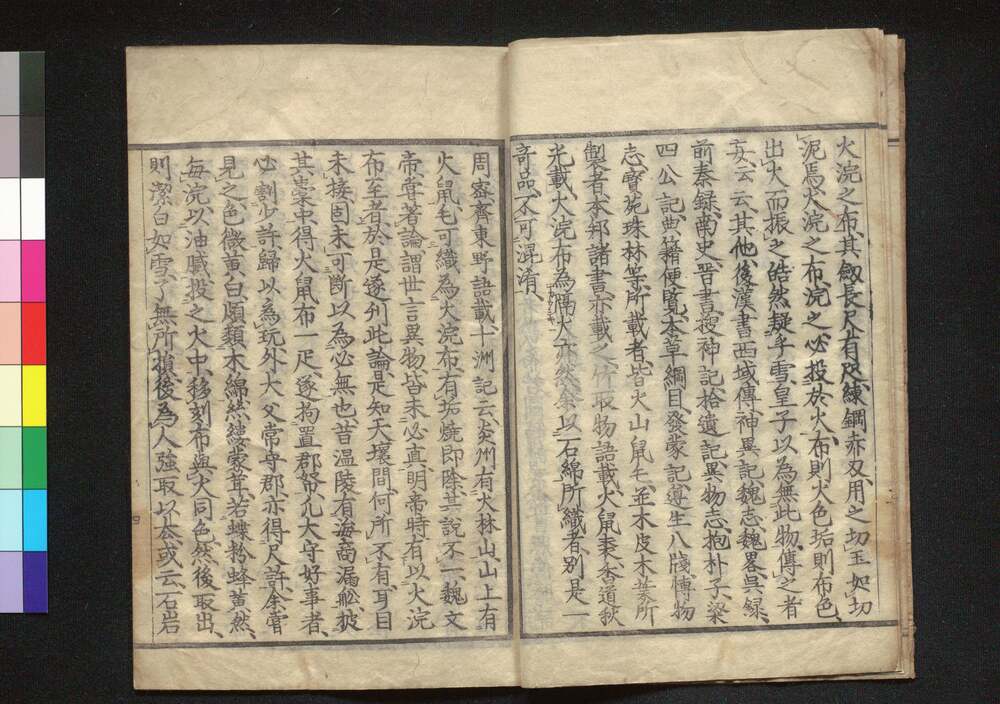 火浣之布、其劔長尺有咫、練鋼赤刄、用之切玉如切
泥焉、火浣之布、浣之必投於火、布則火色、垢則布色、
出火而振之、皓然疑乎雪、皇子以為無此物、傳之者
妄、云云、其他後漢書西域傳神異記魏志魏畧呉録
前秦録南史晋書搜神記拾遺記異物志抱朴子梁
四公記典籍便覧本草綱目發蒙記遵生八牋博物
志寶苑珠林等所載者、皆火山鼠毛、並木皮木葉所
製者、本邦諸書亦載之、竹取物語載火鼠裘、香道秋
光載火浣布為隔火、亦然、余以石綿所織者、別是一
奇品、不可混淆、
周密齊東野語載、十洲記云、炎州有火林山、山上有
火鼠毛、可織為火浣布、有垢焼即除、其説不一、魏文
帝嘗著論、謂世言異物、皆未必真、明帝時有以火浣
布至者、於是遂刋此論、是知天壤間何所不有、耳目
未接、固未可断以為必無也、昔温陵有海商漏舩、披
其槖中、得火鼠布一疋、遂拘置郡帑、凢大守好事者、
必割少許歸以為玩、外大父常守郡、亦得尺許、余嘗
見之、色微黄白、頗類木綿、絲縷蒙茸、若蝶粉蜂黄然、
毎浣以油膩投之火中、移刻布與火同色、然後取出、
則潔白如雪、了無所損、後為人強取以公或云石岩